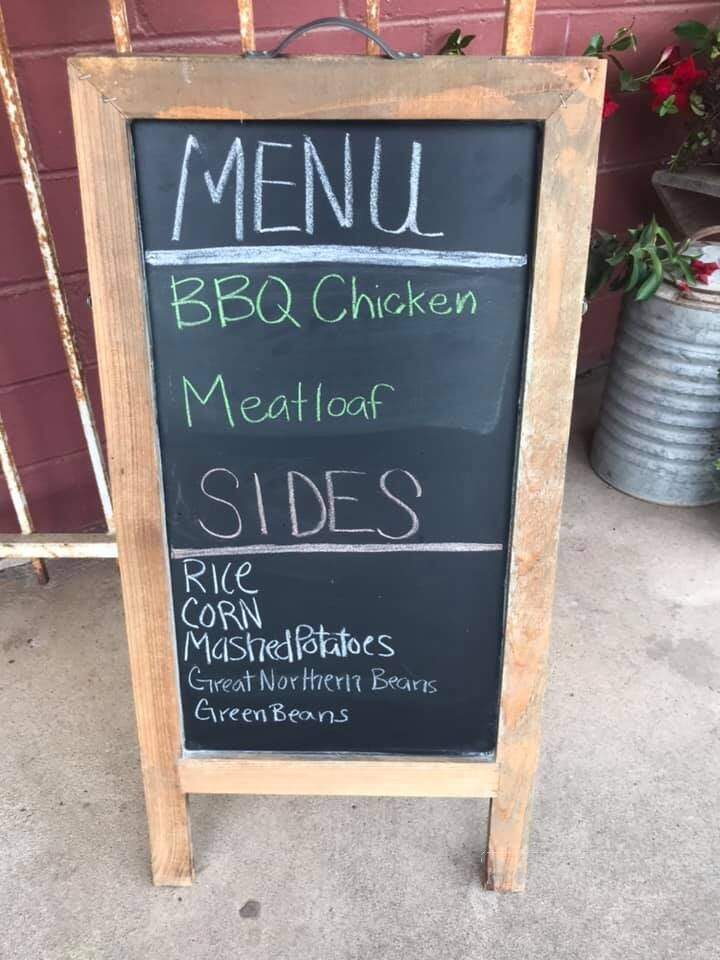 MENU
BBQ Chicken
Meatloaf
SIDES
Rice
CORN
Mashed Potatoes
Great Northern Beans
Green Beans